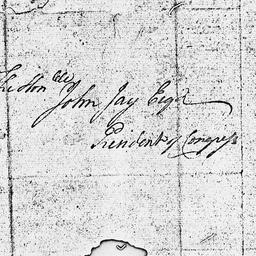 The Hon^ble
John Jay Esqr
President of Congress